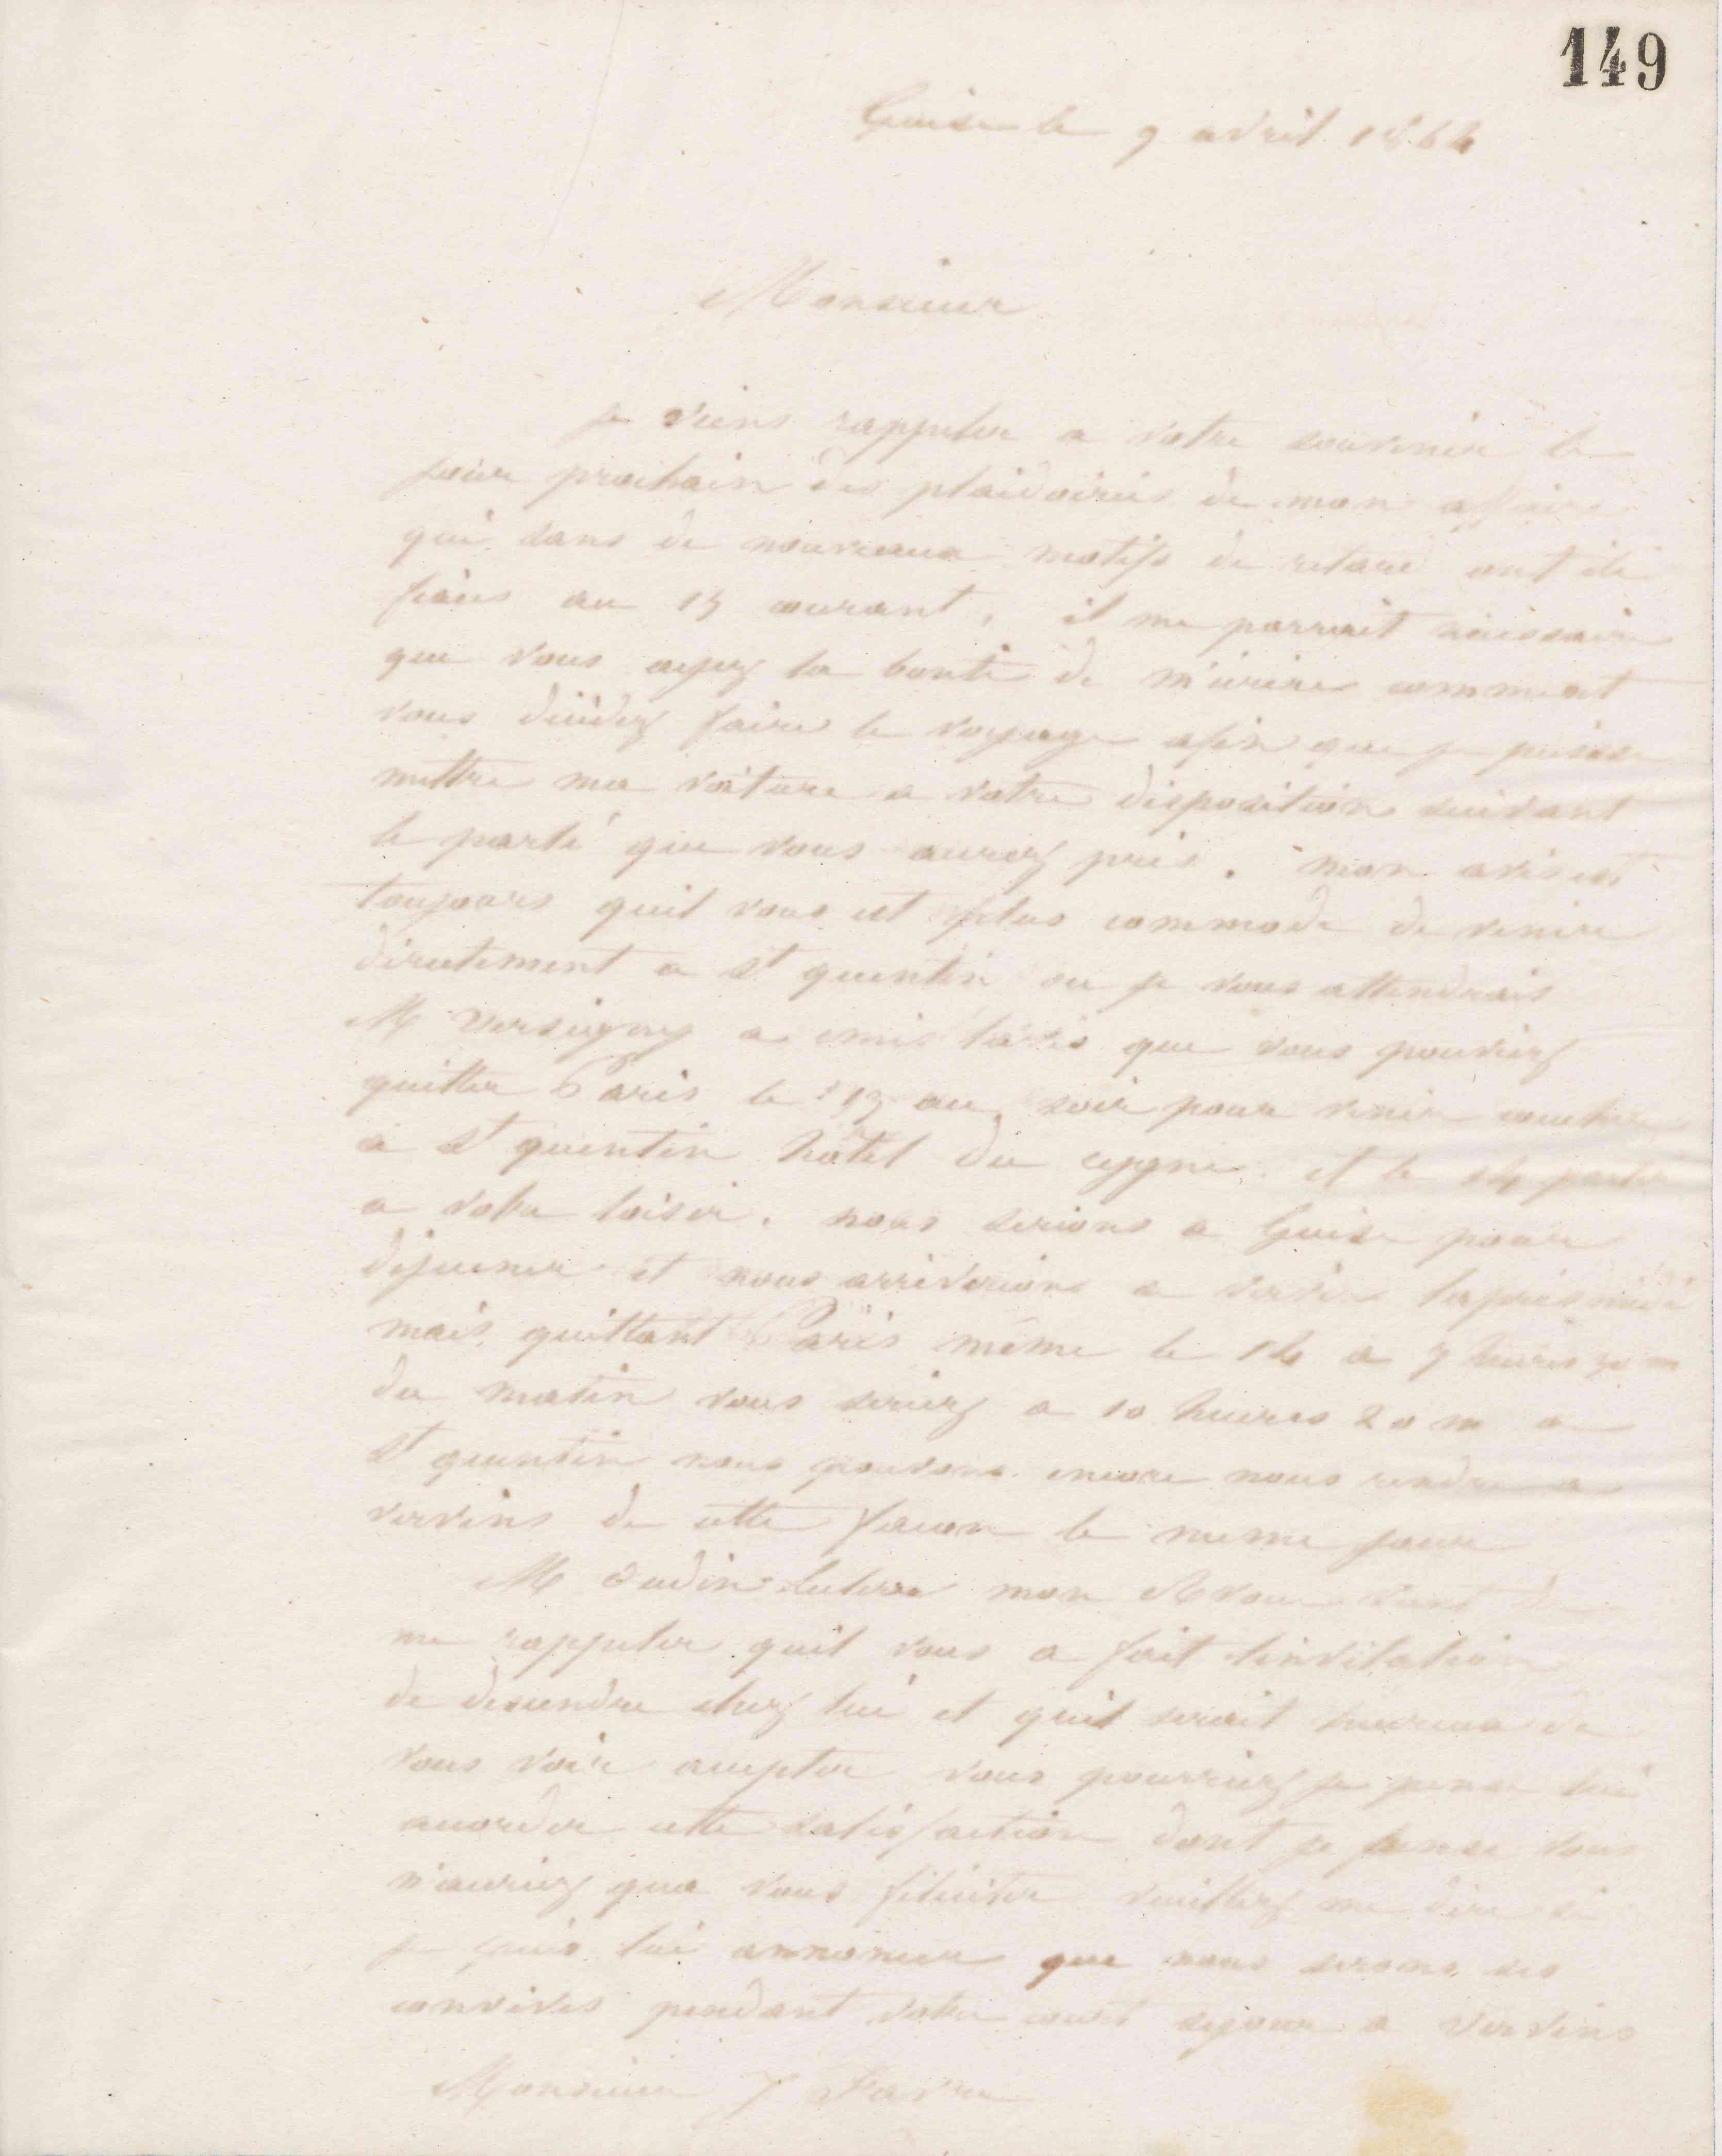 149
Guise le 9 avril 1864
Monsieur
Je viens rappeler a votre souvenir le
jour prochain des plaidoiries de mon affaire
qui sans de nouveaux motifs de retard ont été
fixées au 15 courant, il me parrait nécessaire
que vous ayez la bonté de m'écrire comment
vous décidez faire le voyage afin que je puisse
mettre ma voiture a votre disposition suivant
le parti que vous aurez pris. mon avis est
toujours quil vous est plus commode de venir
directement a St quentin ou je vous attendrais
M Versigny a emis lavis que vous pouviez
quitter Paris le 13 au soir pour venir coucher
a St quentin hôtel du cygne et le 14 partir
a votre loisir. nous serions a Guise pour
déjeuner et nous arriverions a vervins laprès midi
mais quittant Paris même le 14 a 7 heures 30 m
du matin vous seriez a 10 heures 20 m a
St quentin nous pouvons encore nous rendre a
vervins de cette facon le meme jour
M oudin mon Avoué vient de
me rappeler quil vous a fait linvitation
de descendre chez lui et quil serait heureux de
vous voir accepter vous pourriez je pense lui
accorder cette satisfaction dont je pense vous
n'auriez qua vous féliciter veuillez me dire si
je puis lui annoncer que nous serons ses
convives pendant votre court sejour a Vervins
Monsieur J Favre